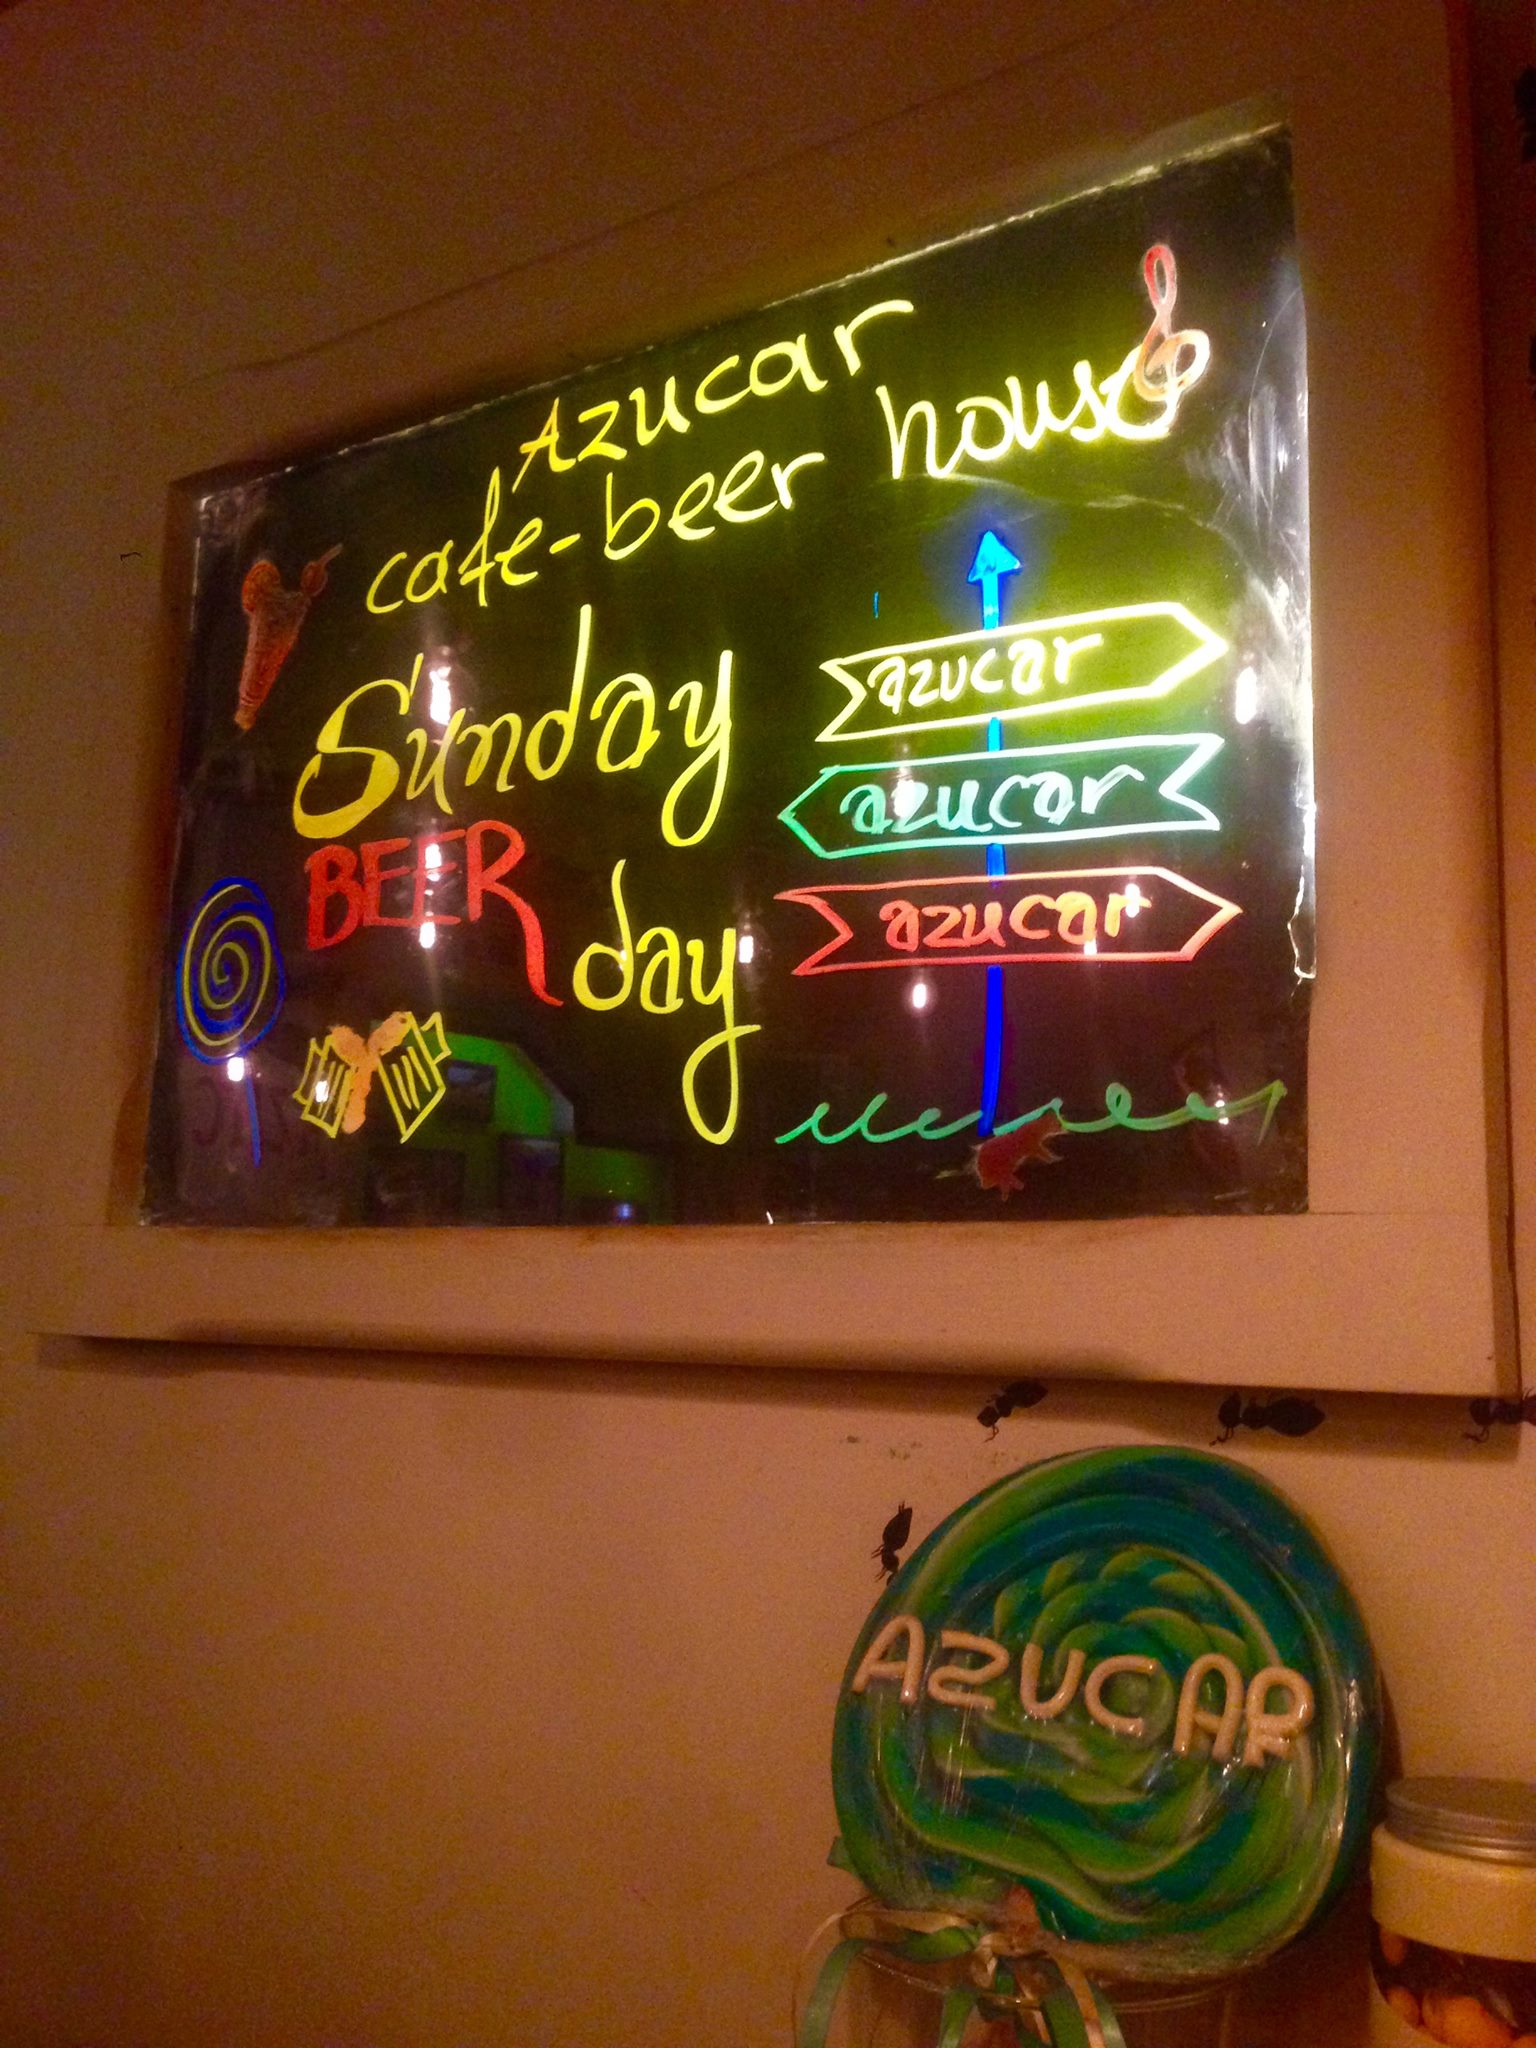 Azucar
cafe-beer house
Sunday
BEER
day
azucar
azucar
azucar
AZUCAR